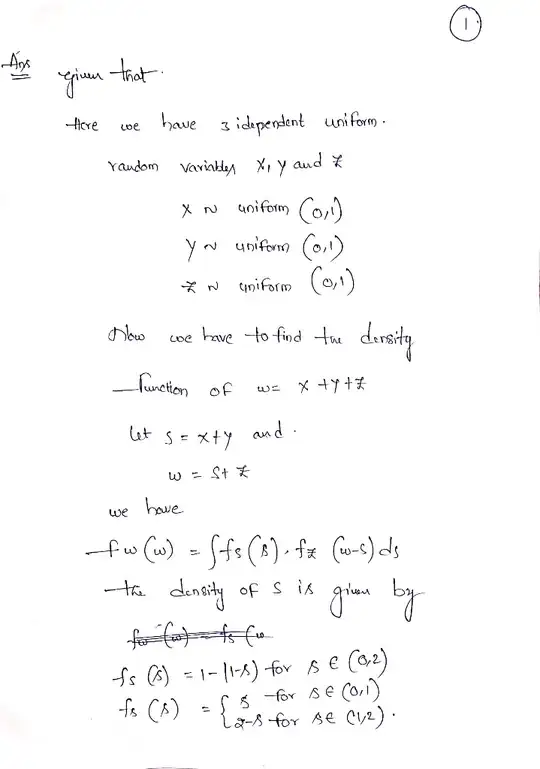 1
Ans
given that.
Here we have 3 idependent uniform.
random variables X, Y and Z
X ~ uniform (0,1)
Y ~ uniform (0,1)
Z ~ uniform (0,1)
Now we have to find the density
function of w = X + Y + Z
let S = X+Y and.
w = S+Z
we have
fw(w) = ∫fs(s). fz (w-s) ds
the density of S is given by
fs(s) = 1-|1-s| for s ∈ (0,2)
fs(s) = { s for s ∈ (0,1)
2-s for s ∈ (1,2).